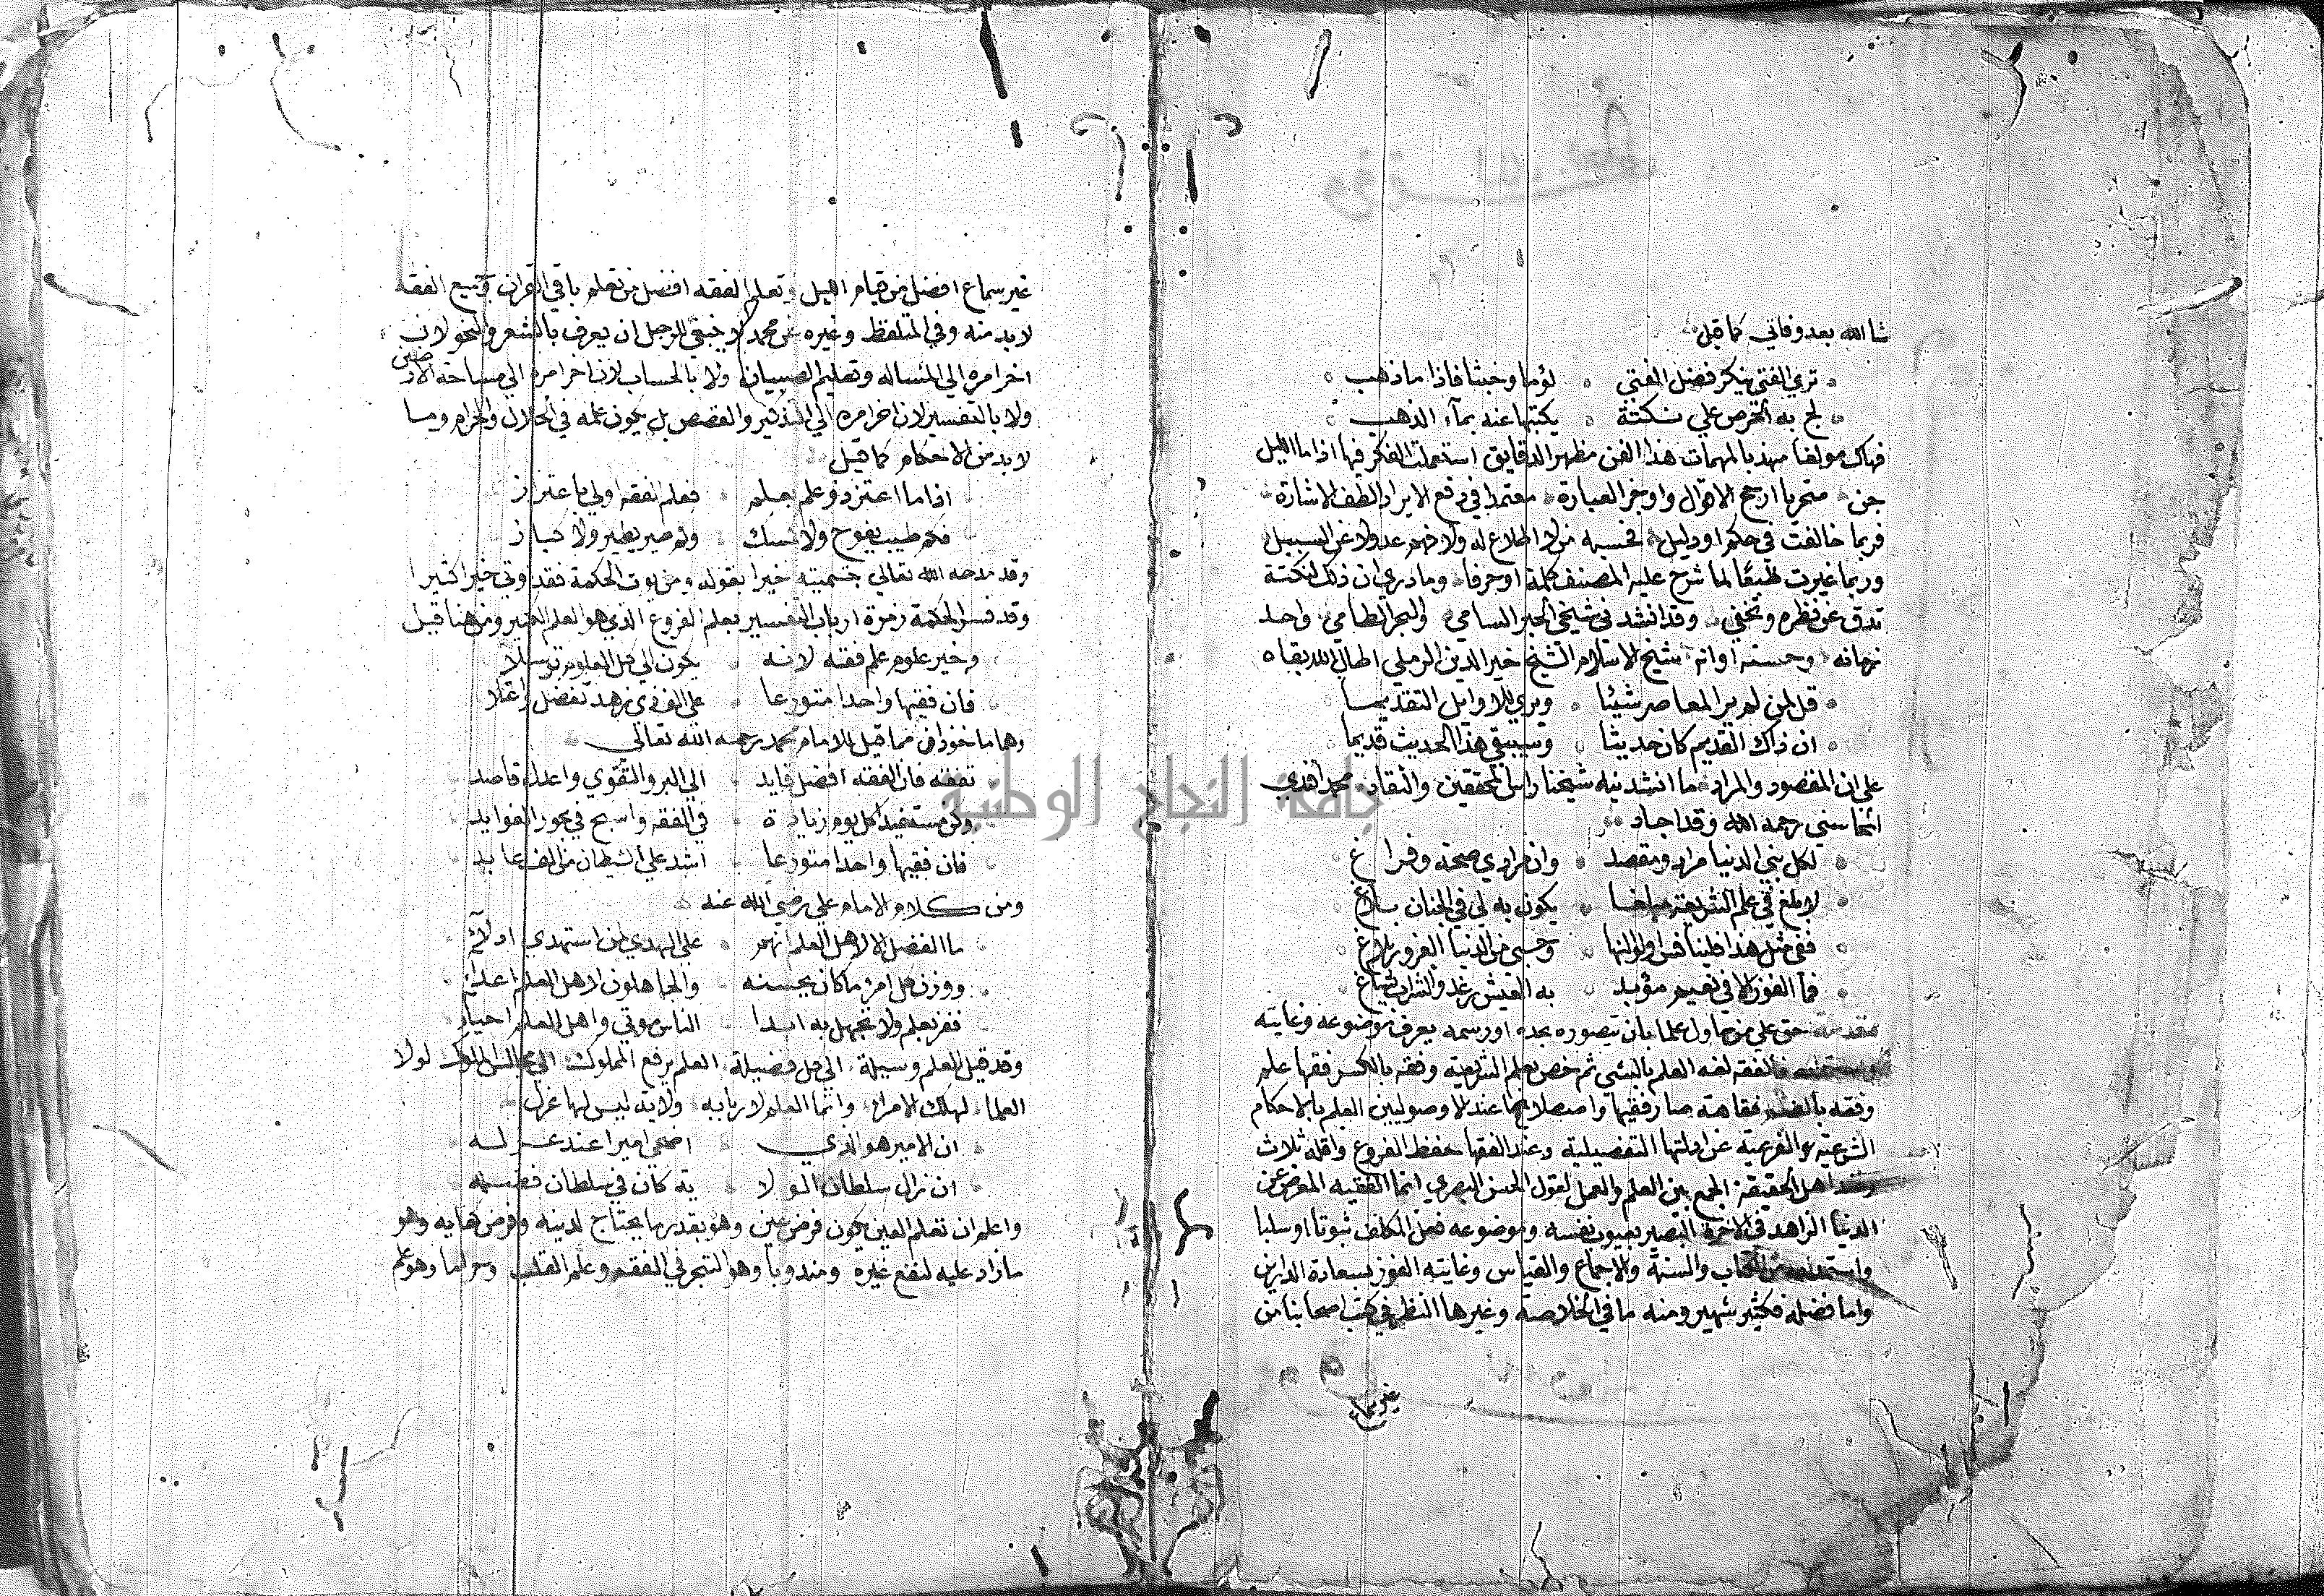 شا الله بعد وفاتي كما قيل
تري الفتي ينكر فضل الفتي لؤما وخبثا فاذا ما ذهب
لج به الحرص علي نكتة يكتبها عنه بمآء الذهب
فهاك مولفا مهذبا لمهمات هذا الفن مظهر الدقايق استعملت الفكر فيها اذا ما الليل
جن متحريا ارجح الاقوال واوجز العبارة معتمدا في دفع الايراد الطف الاشارة
فربما خالفت في حكم او دليل فحسبه من لا اطلاع له ولا فهم عدولا عن السبيل
وربما غيرت تبعا لما شرح عليه المصنف كلمة او حرفا وما دري ان ذلك لنكتة
تدق عن نظره وتخفي وقد انشدني شيخي الحبر السامي والبحر الطامي واحد
زمانه وحسنة اوانه شيخ الاسلام الشيخ خير الدين الرملي اطال الله بقاه
قل لمن لم ير المعاصر شيئا ويري للاوايل التقديما
ان ذاك القديم كان حديثا وسيبقي هذا الحديث قديما
علي ان المقصود والمراد ما انشدنيه شيخنا راس المحققين والنقاد محمد افندي
المحاسني رحمه الله وقد اجاد
لكل بني الدنيا مراد ومقصد وان مرادي صحة وفراغ
لابلغ في علم الشريعة مبلغا يكون به لي في الجنان بلاغ
ففي مثل هذا فلينافس اولوا النها وحسبي من الدنيا الغرور بلاغ
فما الفوز الا في نعيم مؤبد به العيش رغد والشراب يساغ
مقدمة حق علي من حاول علما بان يتصوره بحده او رسمه يعرف موضوعه وغايته
واستمداده فالفقه لغة العلم بالشي ثم خص بعلم الشريعة وفقه بالكسر فقها علم
وفقه بالضم فقاهة صار فقيها واصطلاحا عند الاصوليين العلم بالاحكام
الشرعية الفرعية عن ادلتها التفصيلية وعند الفقها حفظ الفروع واقله ثلاث
وعند اهل الحقيقة الجمع بين العلم والعمل لقول الحسن البصري انما الفقيه المعرض عن
الدنيا الزاهد في الاخرة البصير بعيوب نفسه وموضوعه فعل المكلف ثبوتا او سلبا
واستمداده من الكتاب والسنة والاجماع والقياس وغايته الفوز بسعادة الدارين
واما فضله فكثير شهير ومنه ما في الخلاصة وغيرها النظر في كتب اصحابنا من
غير سماع
غير سماع افضل من قيام الليل وتعلم الفقه افضل من تعلم باقي القران وجميع الفقه
لا بد منه وفي الملتقط وغيره عن محمد لا ينبغي للرجل ان يعرف بالشعر والنحو لان
اخر امره الي المسالة وتعليم الصبيان ولا بالحساب لان اخر امره الي مساحة الارضين
ولا بالتفسير لان اخر امره الي التذكير والقصص بل يكون علمه في الحلال والحرام وما
لا بد من الاحكام كما قيل
اذا ما اعتز ذو علم بعلم فعلم الفقه اولي باعتزاز
فكم طيب يفوح ولا كمسك وكم طير يطير ولا كباز
وقد مدحه الله تعالي بتسميته خيرا بقوله ومن يوت الحكمة فقد اوتي خيرا كثيرا
وقد فسر الحكمة زمرة ارباب التفسير بعلم الفروع الذي هو العلم الكبير ومن هنا قيل
وخير علوم علم فقه لانه يكون الي كل العلوم توسلا
فان فقيها واحدا متورعا علي الف ذي زهد تفضل واعتلا
وهما ماخوذان مما قيل للامام محمد رحمه الله تعالي
تفقه فان الفقه افضل قايد الي البر والتقوي واعدل قاصد
وكن مستفيدا كل يوم زيادة في الفقه واسبح في بحور الفوايد
فان فقيها واحدا متورعا اشد علي الشيطان من الف عابد
ومن كلام الامام علي رضي الله عنه
ما الفضل الا لاهل العلم انهم علي الهدي لمن استهدي ادلآء
ووزن كل امرء ما كان يحسنه والجاهلون لاهل العلم اعداء
ففز بعلم ولا تجهل به ابدا الناس موتي واهل العلم احياء
وقد قيل العلم وسيلة الي كل فضيلة العلم يرفع المملوك الي مجالس الملوك لولا
العلماء لهلك الامراء وانما العلم لاربابه ولاية ليس لها عزل
ان الامير هو الذي اضحي اميرا عند عزله
ان زال سلطان الولا ية كان في سلطان فضله
واعلم ان تعلم العلم يكون فرض عين وهو بقدر ما يحتاج لدينه وفرض كفايه وهو
ما زاد عليه لنفع غيره ومندوبا وهو التبحر في الفقه وعلم القلب وحراما وهو علم
جامعة النجاح الوطنية